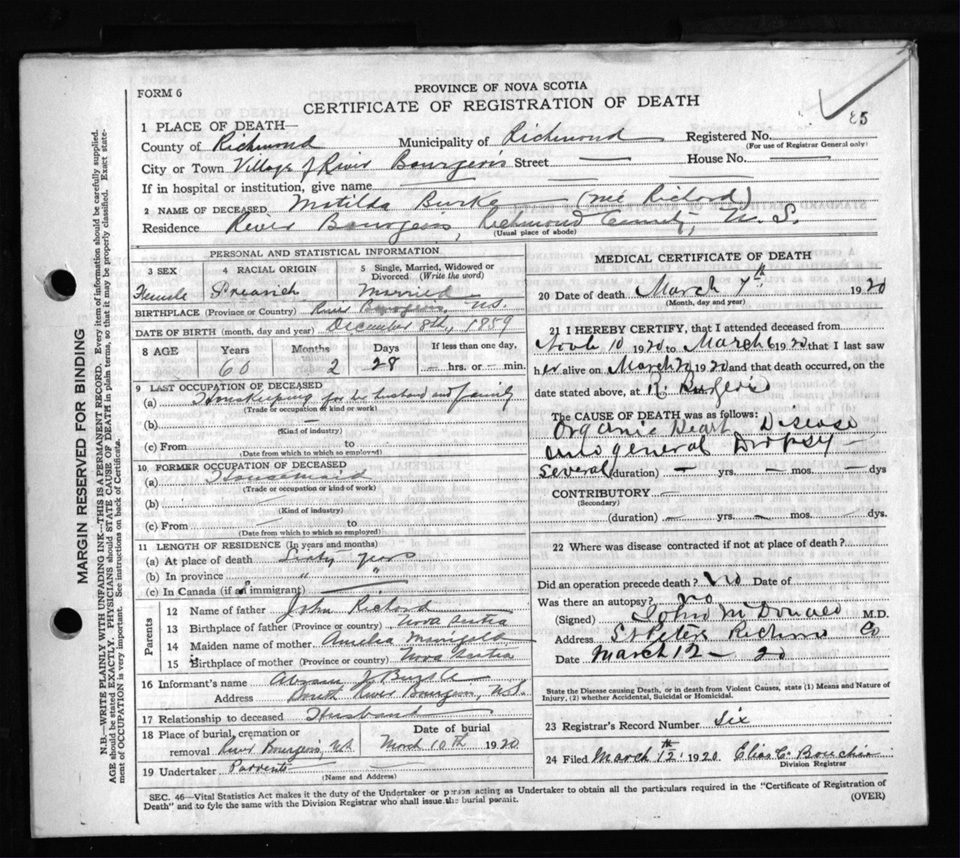 FORM 6
PROVINCE OF NOVA SCOTIA
CERTIFICATE OF REGISTRATION OF DEATH
85
1 PLACE OF DEATH—
County of Richmond Municipality of Richmond Registered No.
(For use of Registrar General only)
City or Town Village of River Bourgeois Street — House No. —
If in hospital or institution, give name —
2 NAME OF DECEASED Matilda Burke (née Richard)
Residence River Bourgeois, Richmond County, N. S.
(Usual place of abode)
PERSONAL AND STATISTICAL INFORMATION
3 SEX 4 RACIAL ORIGIN 5 Single, Married, Widowed or Divorced (Write the word)
Female Married
BIRTHPLACE (Province or Country) River Bourgeois, N.S.
DATE OF BIRTH (month, day and year) December 8th, 1859
8 AGE Years Months Days If less than one day,
60 2 28 — hrs. or min.
9 LAST OCCUPATION OF DECEASED
(a) Housekeeping for her husband and family
(Trade or occupation or kind or work)
(b) —
(Kind of industry)
(c) From to
(Date from which to which so employed)
10 FORMER OCCUPATION OF DECEASED
(a) Housemaid
(Trade or occupation or kind of work)
(b)
(Kind of industry)
(c) From — to
(Date from which to which so employed)
11 LENGTH OF RESIDENCE (In years and months)
(a) At place of death Sixty years
(b) In province " "
(c) In Canada (if an immigrant) —
Parents
12 Name of father John Richard
13 Birthplace of father (Province or country) Nova Scotia
14 Maiden name of mother Amelia
15 Birthplace of mother (Province or country) Nova Scotia
16 Informant's name Abram J Burke
Address South River Bourgeois, N.S.
17 Relationship to deceased Husband
18 Place of burial, cremation or Date of burial
removal River Bourgeois, NS March 10th 1920
19 Undertaker Parvents
(Name and Address)
MEDICAL CERTIFICATE OF DEATH
20 Date of death March 7th 1920
(Month, day and year)
21 I HEREBY CERTIFY, that I attended deceased from
10 1920 to March 6 1920 that I last saw
her alive on March 2 1920 and that death occurred, on the
date stated above, at R.
The CAUSE OF DEATH was as follows:
Organic Heart Disease
and general Dropsy
Several (duration) — yrs. — mos. — dys
CONTRIBUTORY —
(Secondary)
(duration) — yrs. — mos. — dys.
22 Where was disease contracted if not at place of death?
Did an operation precede death? No Date of
Was there an autopsy? no
(Signed) John McDonald M.D.
Address St Peters Richmond Co
Date March 12 — 20
State the Disease causing Death, or in death from Violent Causes, state (1) Means and Nature of
Injury, (2) whether Accidental, Suicidal or Homicidal.
23 Registrar's Record Number Six
24 Filed March 12th 1920 Elias C.
Division Registrar
SEC. 46—Vital Statistics Act makes it the duty of the Undertaker or person acting as Undertaker to obtain all the particulars required in the "Certificate of Registration of
Death" and to fyle the same with the Division Registrar who shall issue the burial permit.
(OVER)
MARGIN RESERVED FOR BINDING
N.B.—WRITE PLAINLY WITH UNFADING INK—THIS IS A PERMANENT RECORD. Every item of information should be carefully supplied.
AGE should be stated EXACTLY. PHYSICIANS should STATE CAUSE OF DEATH in plain terms, so that it may be properly classified. Exact state-
ment of OCCUPATION is very important. See instructions on back of Certificate.